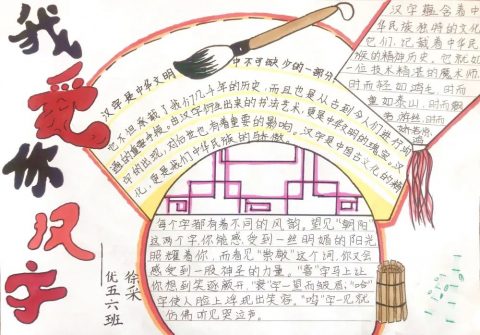 我爱你汉字
徐采
优五六班
汉字是中华文明中不可缺少的一部分
它不但承载了我们几千年的历史，而且也是从古到今人们进行沟
通的重要手段。由汉字衍生出来的书法艺术，更是中华文明的瑰宝。汉
字的出现，对后世也有着重要的影响。汉字是中国古文化的精
化，更是我们中华民族的骄傲。
汉字蕴含着中
华民族独特的文化
它们，记载着中华民
族的精神历史。它就如
一位技术精湛的魔术师
时而轻如鸿毛，时而
重如泰山，时而
每个字都有着不同的风韵。望见“朝阳”
这两个字，你能感受到一丝明媚的阳光
照耀着你，而看见“崇敬”这个词，你又会
感受到一股神圣的力量。“喜”字马上让
你想到笑逐颜开，“哀”字一望而皱眉，“哈”
字使人脸上浮现出笑容。“呜”字一见就
仿佛听见哭泣声。